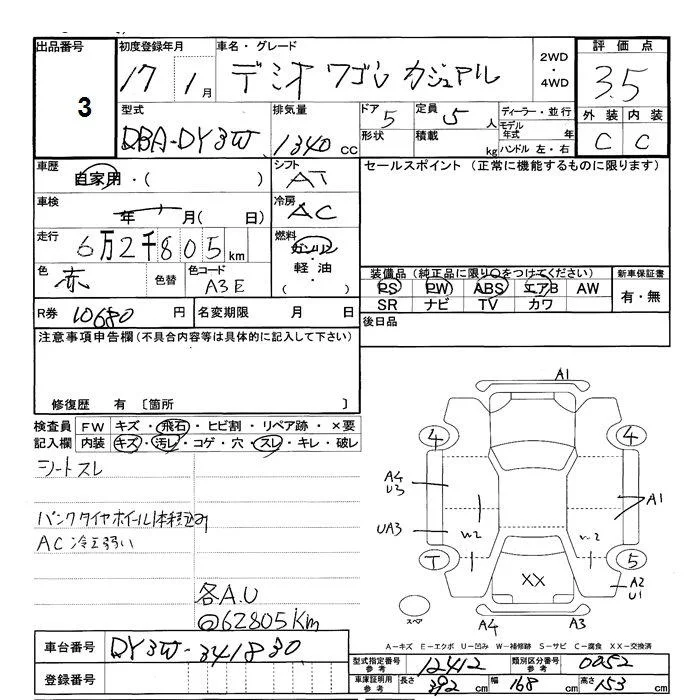 出品番号 初度登録年月 車名・グレード 2WD・4WD 評価点
3 17 1月 デミオ ワゴン カジュアル 3.5
型式 排気量 ドア 5 定員 5人 ディーラー・並行 外装 内装
DBA-DY3W 1340 CC 形状 積載 kg モデル年式 年 ハンドル 左・右 C C
車歴 自家用・( ) シフト AT セールスポイント (正常に機能するものに限ります)
車検 年 月( 日) 冷房 AC
走行 6万2千805km 燃料 ガソリン・軽油・( )
色 赤 色替 色コード A3E
装備品(純正品に限り○をつけてください) 新車保証書
PS PW ABS エアB AW 有・無
SR ナビ TV カワ
R券 10680円 名変期限 月 日 後日品
注意事項申告欄(不具合内容等は具体的に記入して下さい)
修復歴 有 〔箇所 〕
検査員 FW キズ・飛石・ヒビ割・リペア跡・×要
記入欄 内装 キズ・汚レ・コゲ・穴・スレ・キレ・破レ
シートスレ
パンクタイヤホイール1本積込
AC冷え弱い
各A.U
@62805Km
A1
4 4
A4 U3
A1
UA3
W2 W2
T 5
XX
A2 U1
スペア
A4 A3
A-キズ E-エクボ U-凹み W-補修跡 S-サビ C-腐食 XX-交換済
車台番号 DY3W-341830
登録番号
型式指定番号 参考 12412 類別区分番号 参考 0052
車庫証明用 参考 長さ 392 cm 幅 168 cm 高さ 153 cm